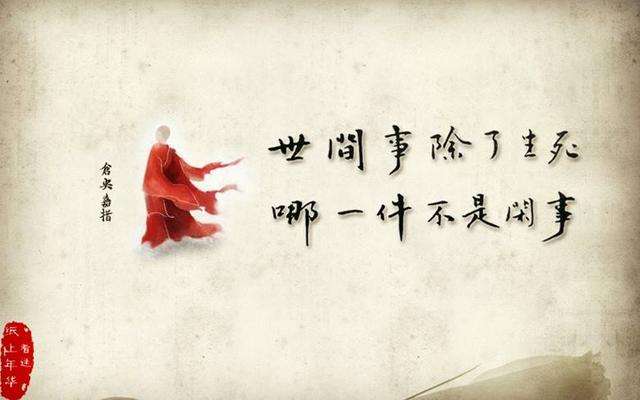 世間事除了生死
哪一件不是閑事
倉央嘉措
纸上年华